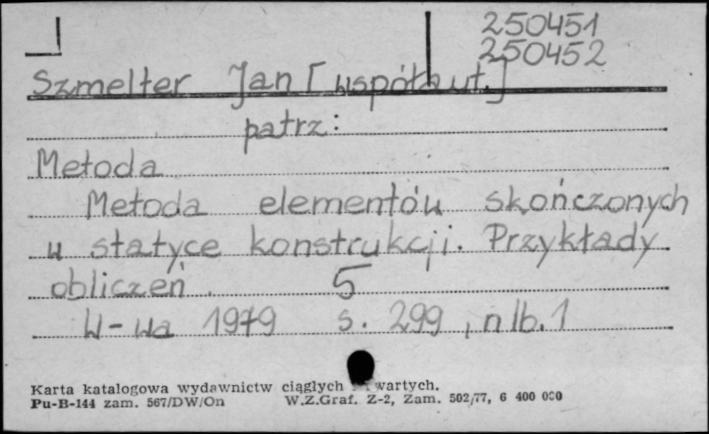 250451
250452
Szmelter Jan [współaut.]
patrz:
Metoda
Metoda elementów skończonych
w statyce konstrukcji. Przykłady
obliczeń. 5
W-wa 1979 s. 299, nlb. 1
Karta katalogowa wydawnictw ciągłych wartych.
Pu-B-144 zam. 567/DW/On W.Z.Graf. Z-2, Zam. 502/77, 6 400 000